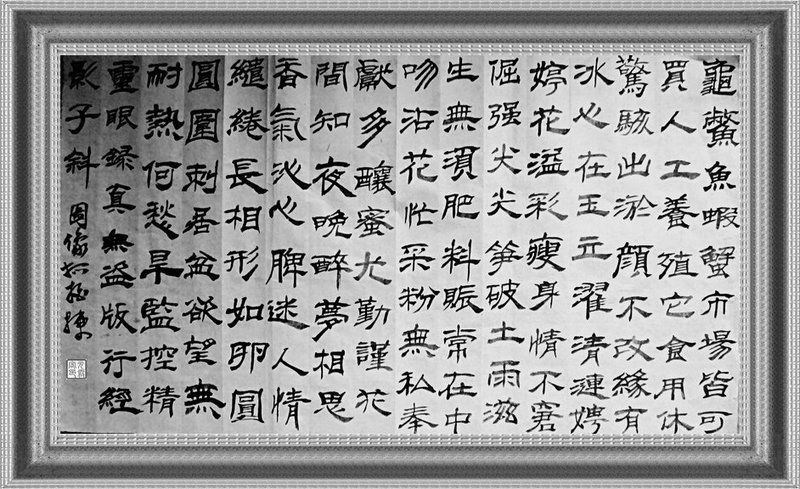 龜鱉魚蝦蟹市場皆可
買人工養殖它食用休
驚駭出淤顏不改緣有
冰心在玉立濯清漣娉
婷花溢彩瘦身情不窘
倔强尖尖笋破土雨滋
生無須肥料賑常在中
吻沾花忙采粉無私奉
獻多釀蜜尤勤謹花
間知夜晚醉夢相思
香氣沁心脾迷人情
繾綣長相形如卵圓
圓圓刺居盆欲望無
耐熱何愁旱監控精
靈眼錄真無盜版行經
影子斜